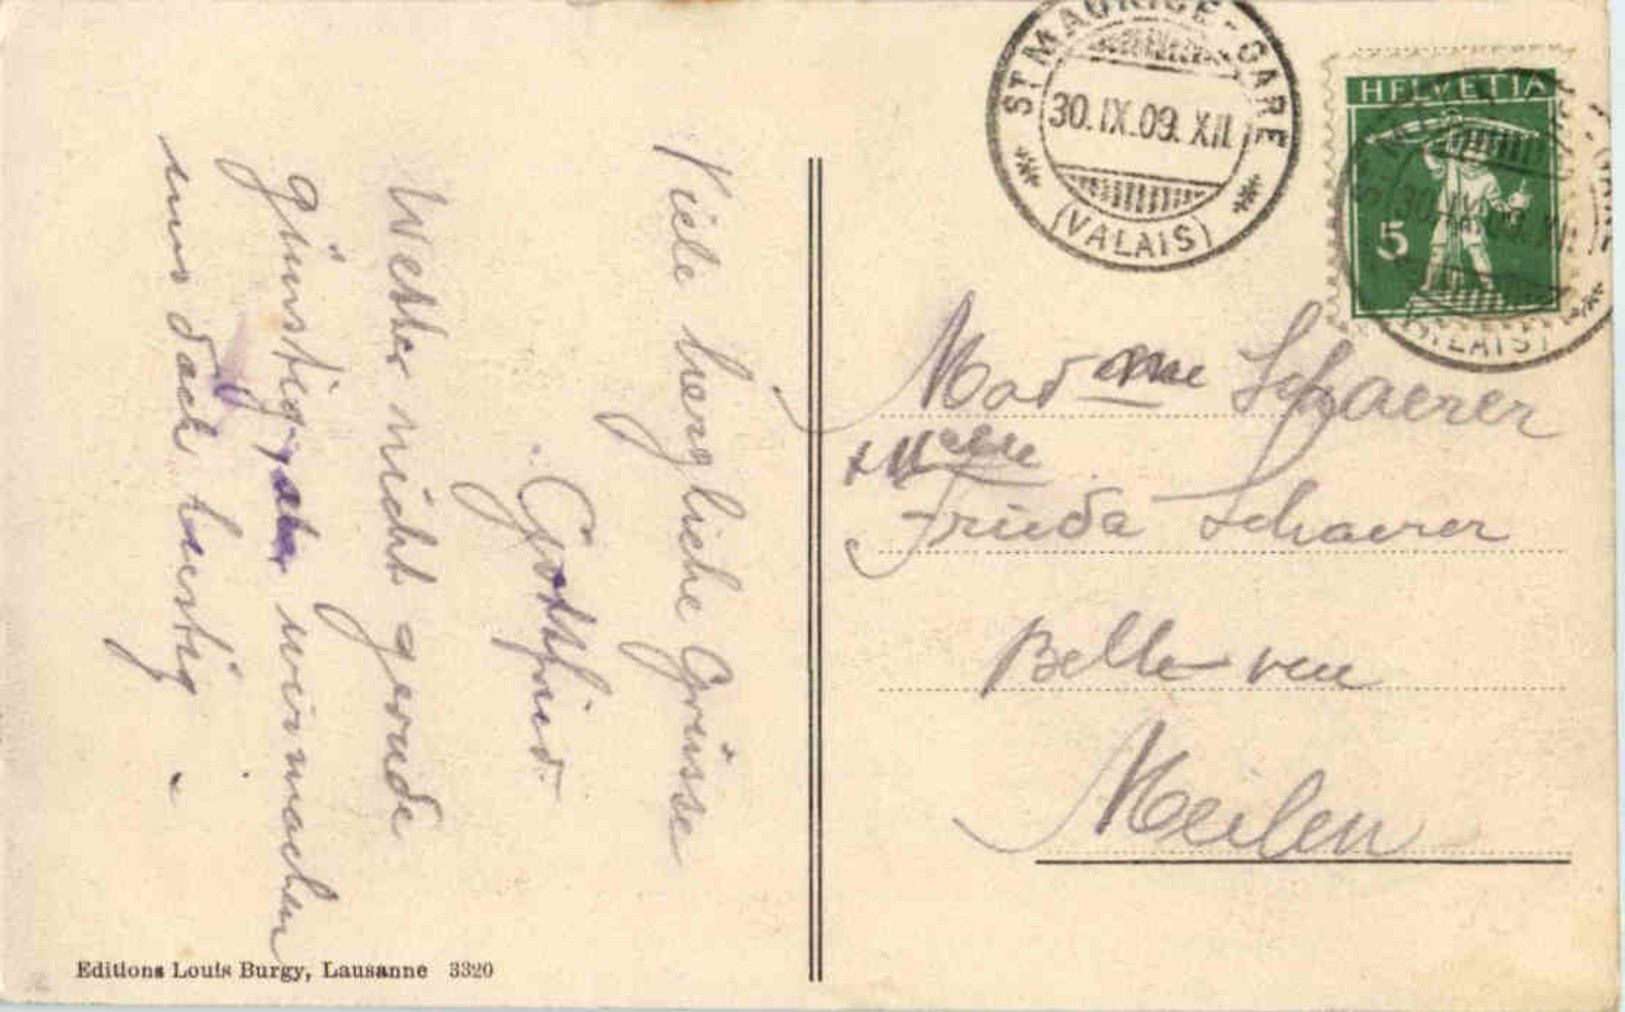 Viele herzliche Grüsse
Gottfried.
Wetter nicht gerade
günstig, aber wir machen
uns doch lustig.
ST MAURICE-GARE
30.IX.09.XII
(VALAIS)
HELVETIA
5
Madame Schaerer
+ Mlle
Frieda Schaerer
Bellevue
Meilen
Editions Louis Burgy, Lausanne 3320